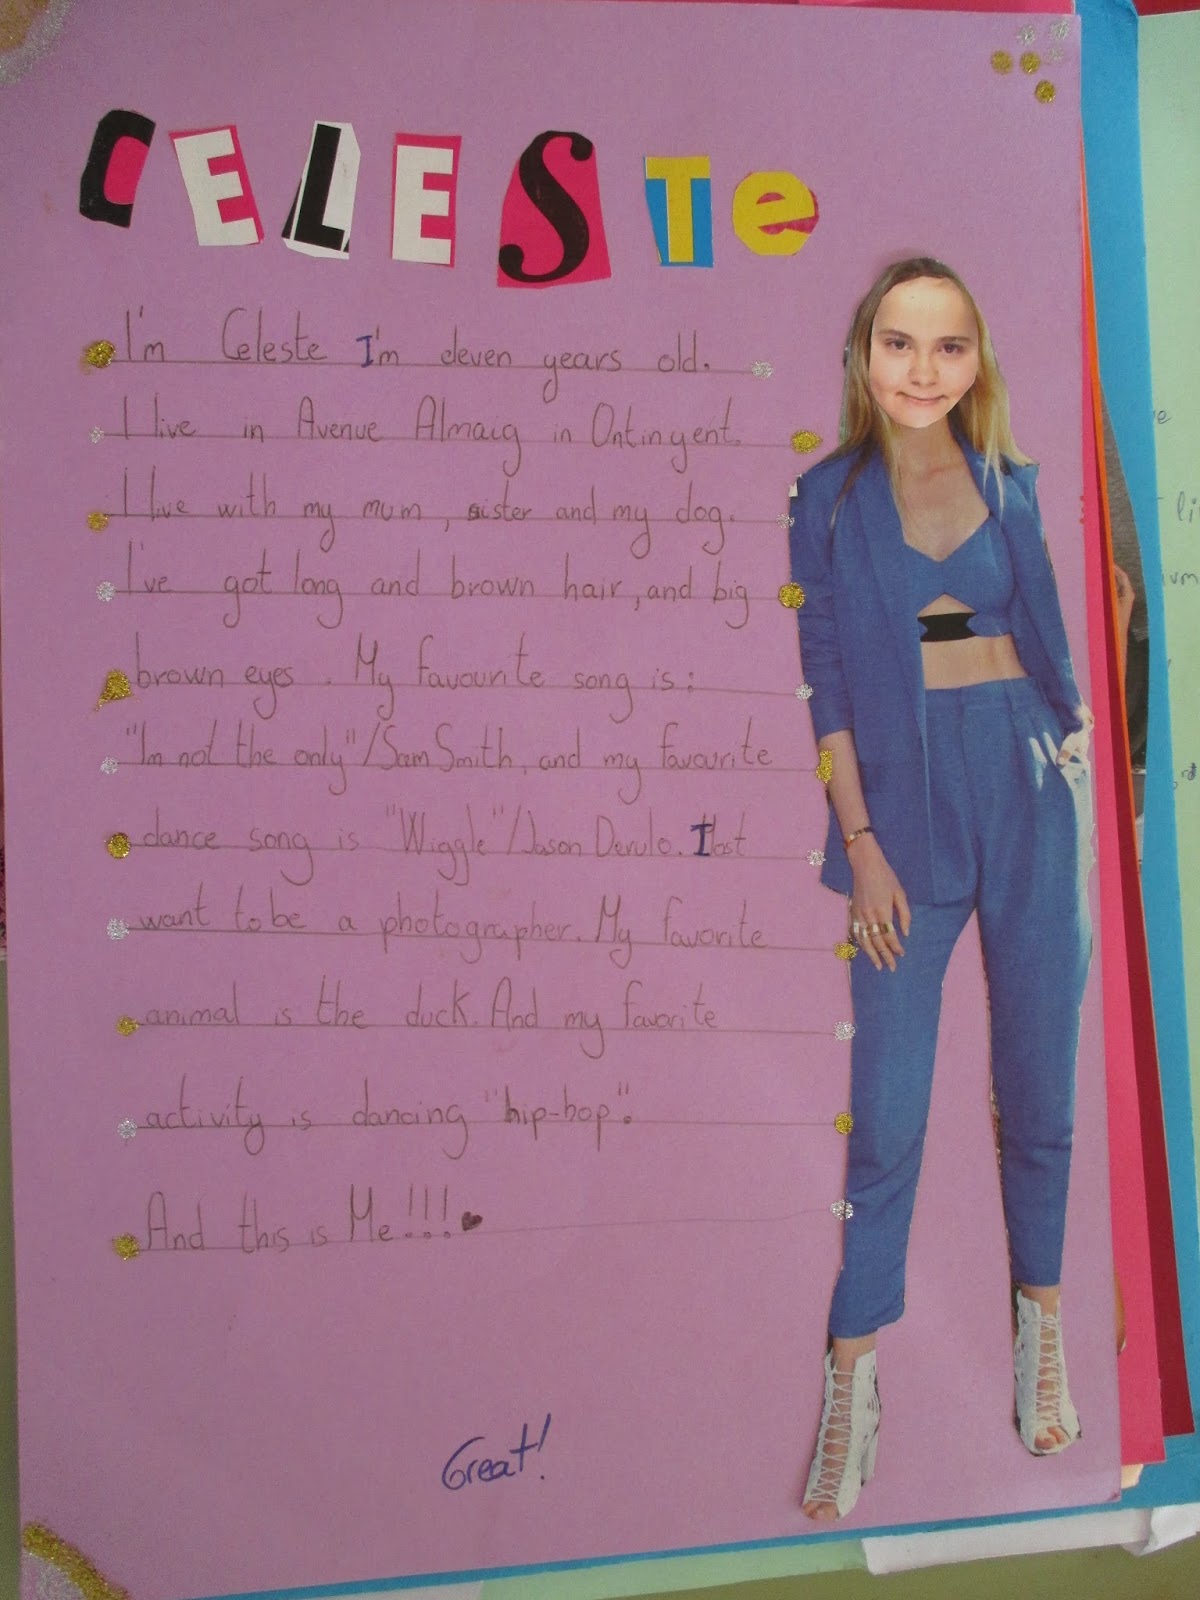 CELESTe
I'm Celeste I'm eleven years old.
I live in Avenue Almaig in Ontinyent.
I live with my mum, sister and my dog.
I've got long and brown hair, and big
brown eyes. My favourite song is:
"I'm not the only"/Sam Smith, and my favourite
dance song is "Wiggle"/Jason Derulo. I
want to be a photographer. My favorite
animal is the duck. And my favorite
activity is dancing "hip-hop".
And this is Me!!!
Great!